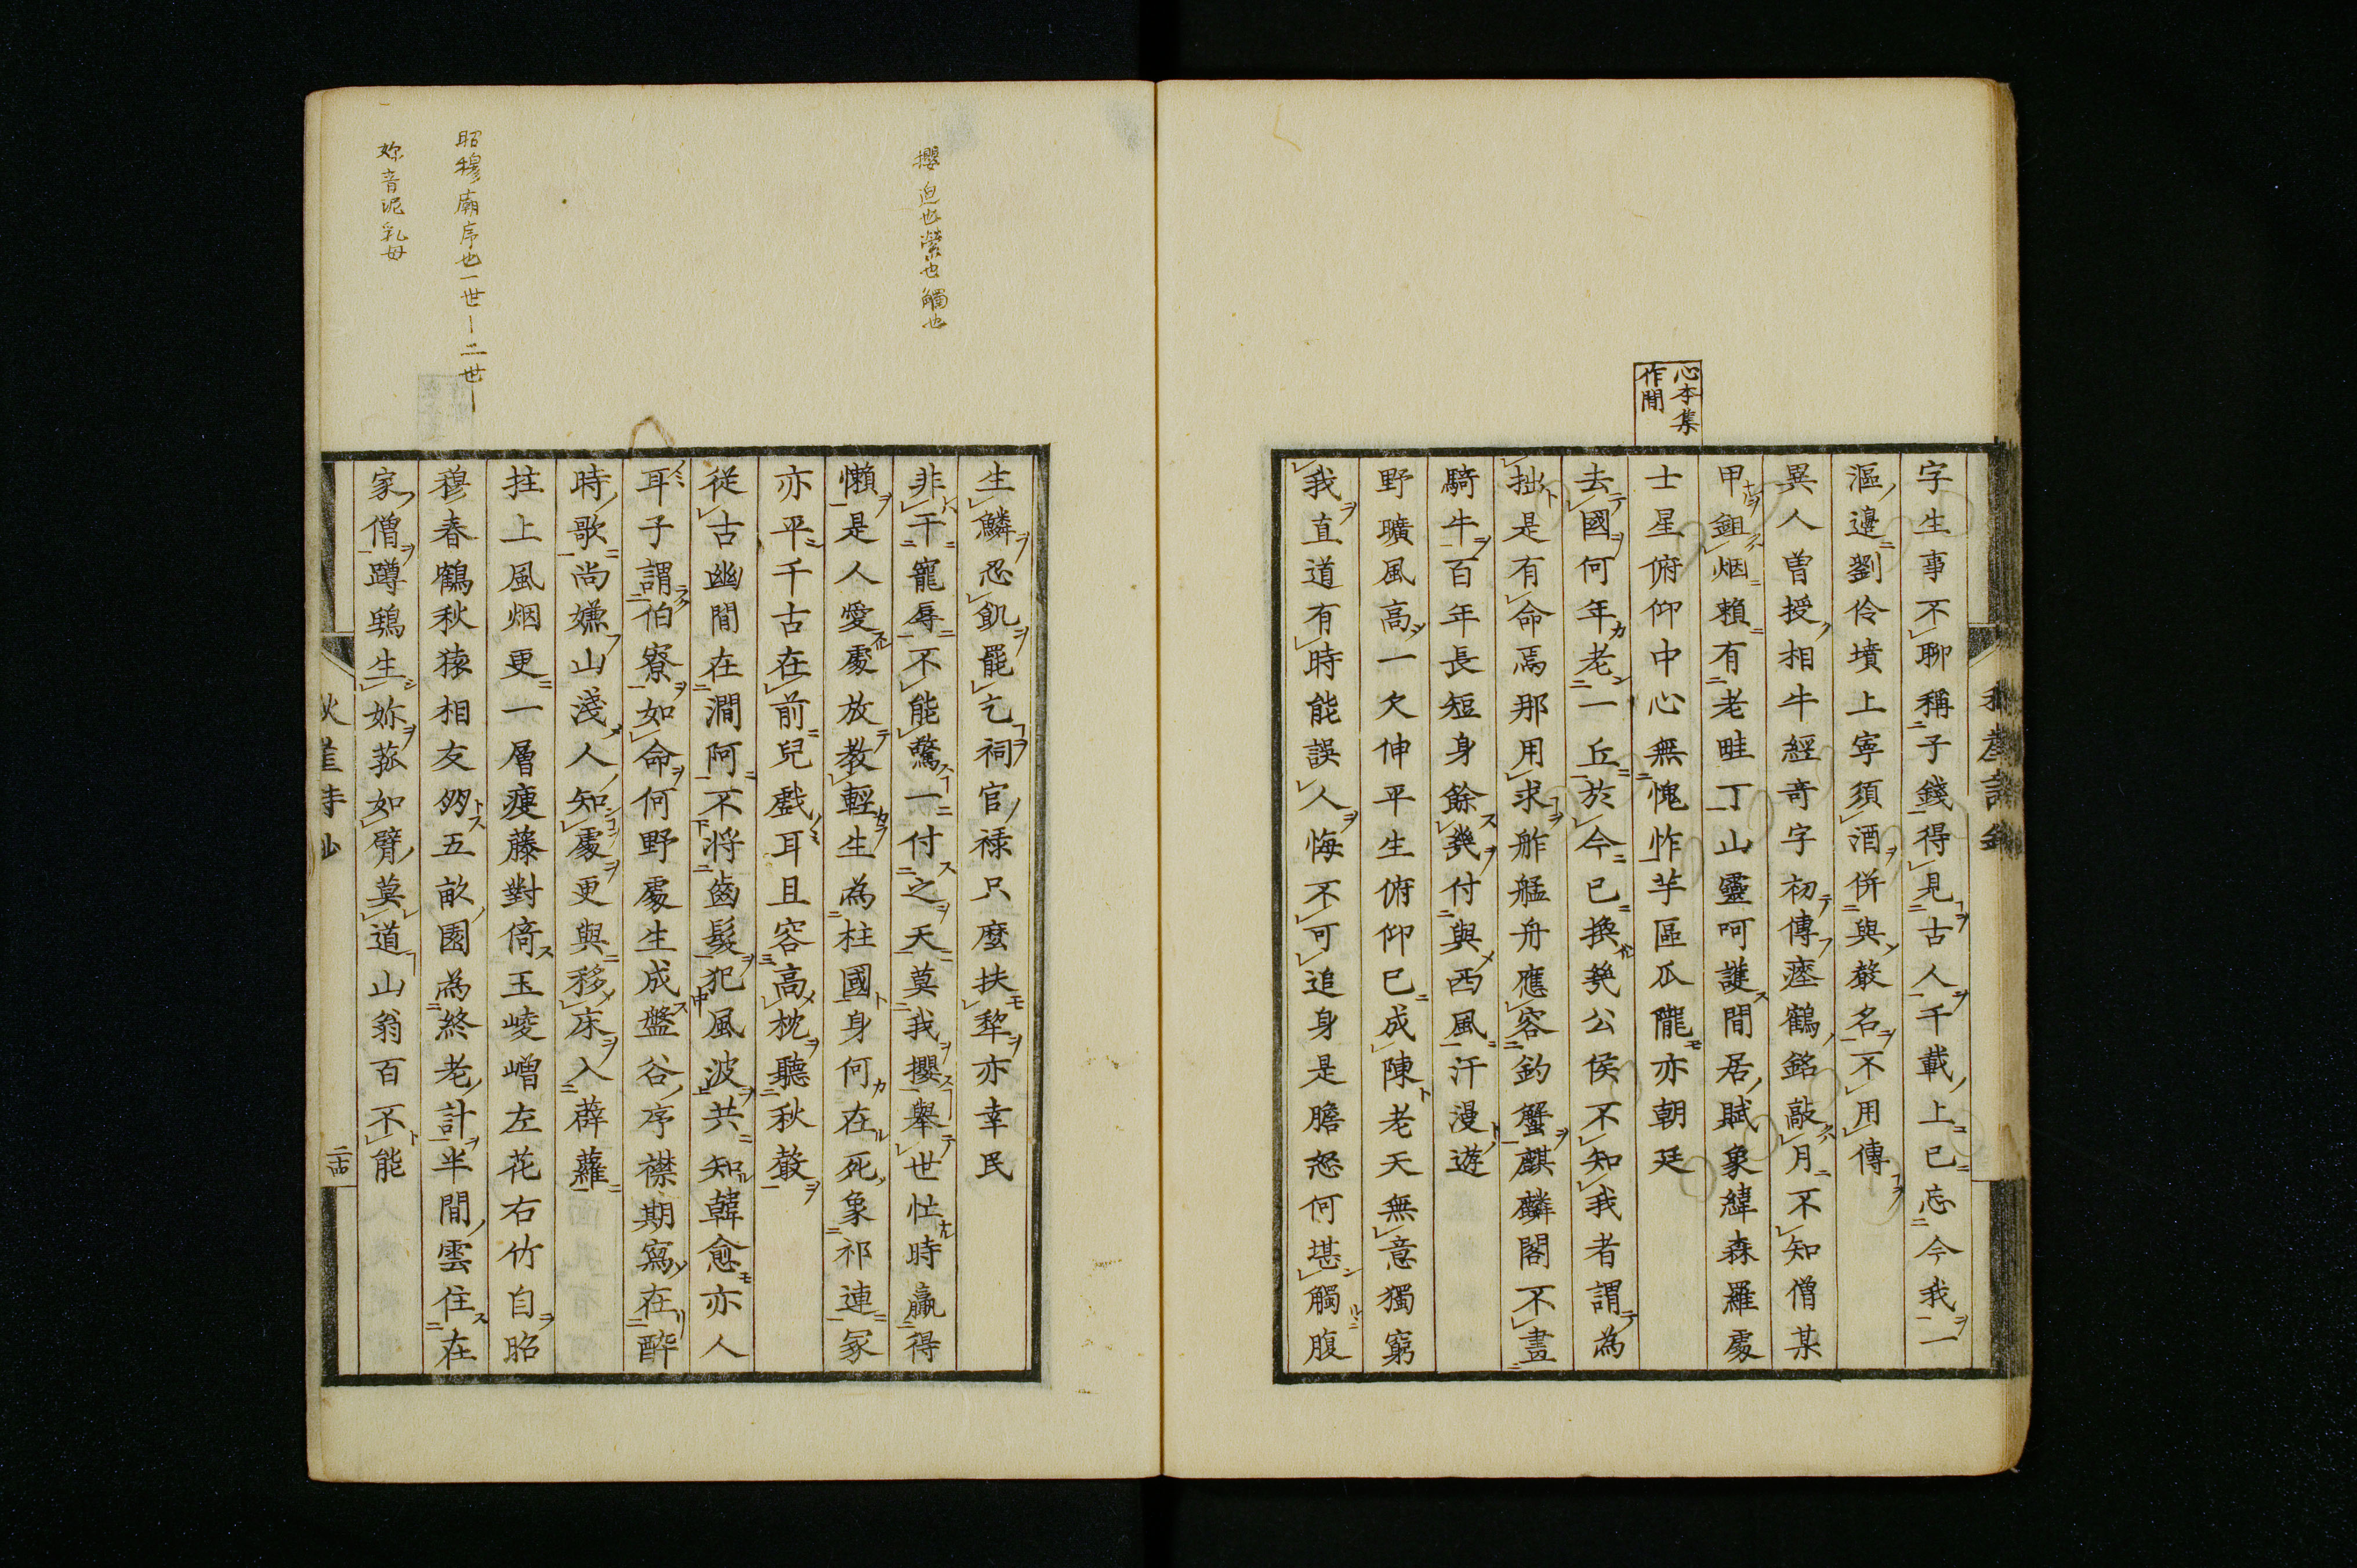 心本集
作間
字生事不聊稱子錢得見古人千載上已忘今我一
漚邊劉伶墳上寧須酒併與聲名不用傳
異人曽授相牛經奇字初傳瘞鶴銘敲月不知僧某
甲鉏烟賴有老畦丁山靈呵護間居賦象緯森羅處
士星俯仰中心無愧怍芋區瓜隴亦朝廷
去國何年老一丘於今已換幾公侯不知我者謂為
拙是有命焉那用求舴艋舟應容釣蟹麒麟閣不畫
騎牛百年長短身餘幾付與西風汗漫遊
野曠風高一欠伸平生俯仰已成陳老天無意獨窮
我直道有時能誤人悔不可追身是膽怒何堪觸腹
攖迫也縈也觸也
昭穆廟序也一世ー二世ー
妳音泥乳母
生鱗忍飢罷乞祠官祿只麼扶犂亦幸民
非干寵辱不能驚一付之天莫我攖舉世忙時贏得
懶是人愛處放教輕生為柱國身何在死象祁連冢
亦平千古在前兒戲耳且容高枕聽秋聲
從古幽間在澗阿不將齒髮犯風波共知韓愈亦人
耳子謂伯寮如命何野處生成盤谷序襟期寫在醉
時歌尚嫌山淺人知處更與移床入薜蘿
拄上風烟更一層痩藤對倚玉崚嶒左花右竹自昭
穆春鶴秋猿相友朋五畝園為終老計半間雲住在
家僧蹲鴟生妳菰如臂莫道山翁百不能
二十四